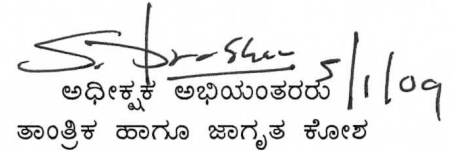 5/1/09
ಅಧೀಕ್ಷಕ ಅಭಿಯಂತರರು
ತಾಂತ್ರಿಕ ಹಾಗೂ ಜಾಗೃತ ಕೋಶ